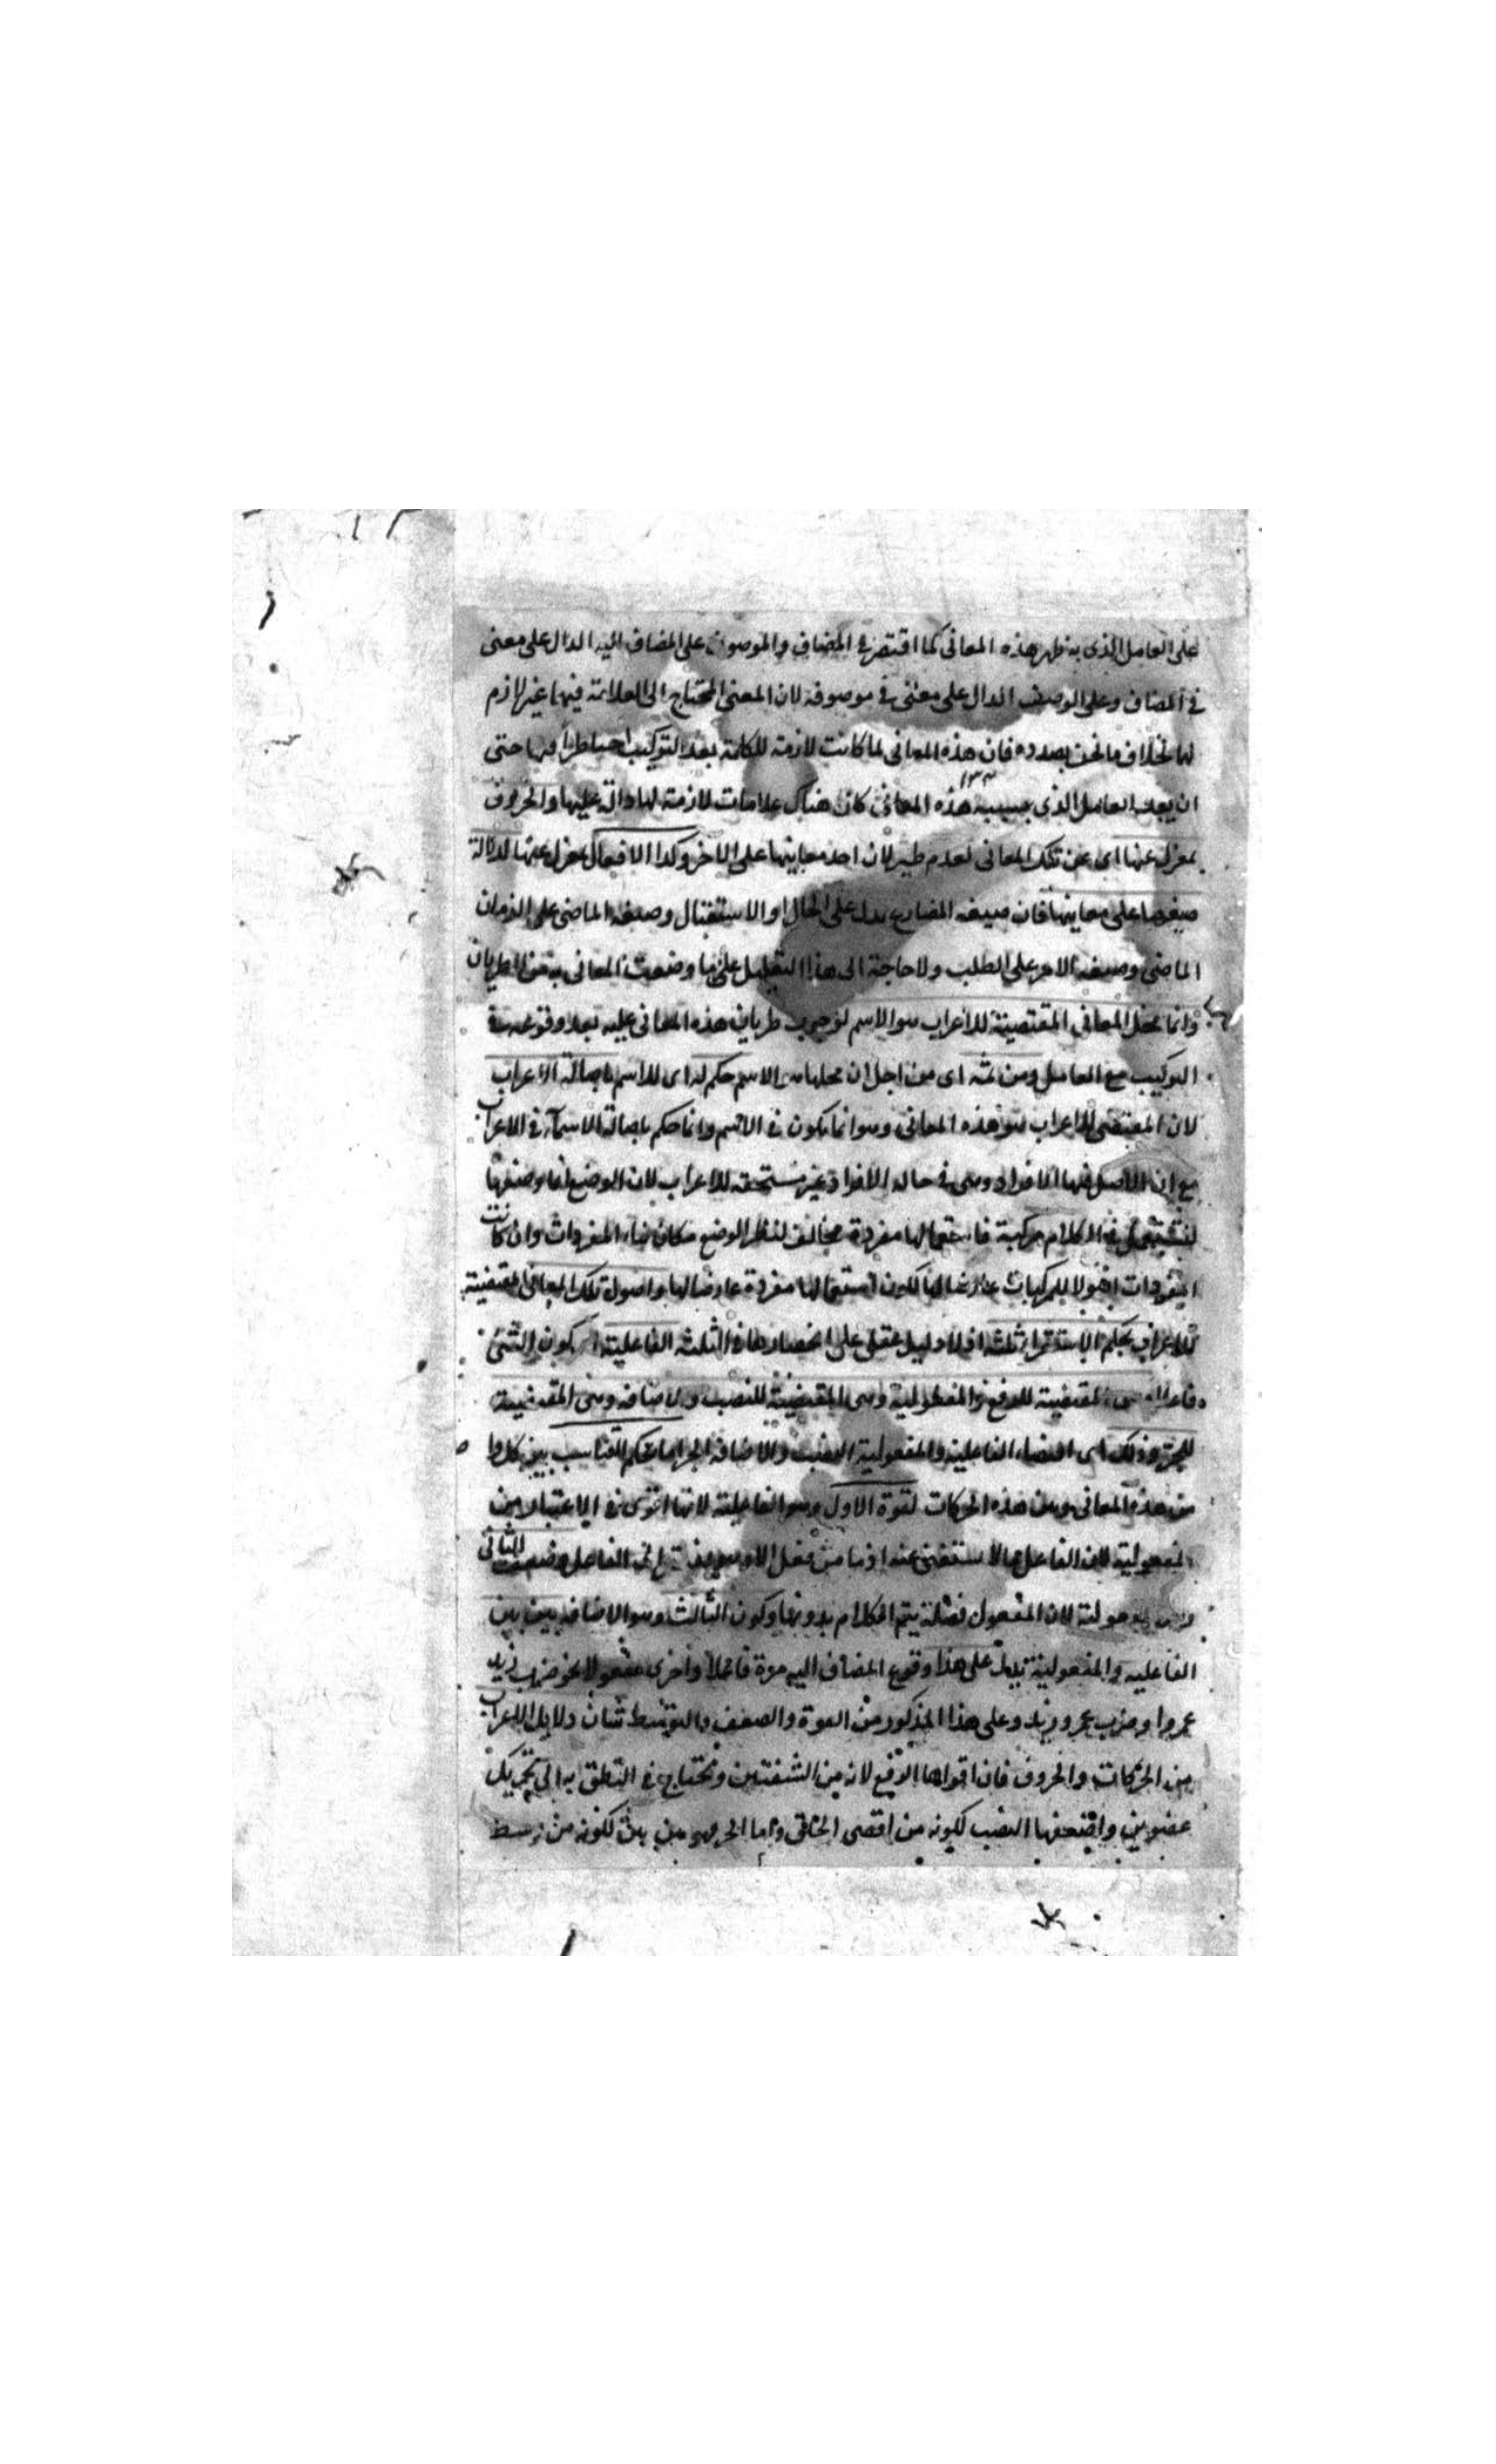 على العامل الذى به ظهر هذه المعانى كما اقتصر فى المضاف والموصوف على المضاف اليه الدال على معنى
فى المضاف وعلى الوصف الدال على معنى فى موصوفه لان المعنى المحتاج الى العلامة فيها غير لازم
لها بخلاف ما نحن بصدده فان هذه المعانى لما كانت لازمة للكلمة بعد التركيب حتى
ان بعد العامل الذى بسببه هذه المعانى كان هناك علامات لازمة لها دالة عليها والحروف
بمعزل عنها اى عن تلك المعانى لعدم طريان احد معانيها على الاخر وكذا الافعال بمعزل عنها لدلالة
صيغها على معانيها فان صيغه المضارع يدل على الحال او الاستقبال وصيغه الماضى على الزمان
الماضى وصيغه الامر على الطلب ولا حاجة الى هذا التعليل على ما وضعت المعانى
وانما محل المعانى المقتضية للاعراب هو الاسم لوجوب طريان هذه المعانى عليه بعد وقوعه فى
التركيب مع العامل ومن ثمه اى من اجل ان محلها هو الاسم حكم له اى للاسم باصالة الاعراب
لان المقتضى للاعراب هو هذه المعانى وهو انما يكون فى الاسم وانما حكم باصالة الاسماء فى الاعراب
مع ان الاصل فيها الافراد وهى فى حالة الافراد غير مستحقه للاعراب لان الوضع انما وضعها
لتستعمل فى الكلام مركبة فاستعمالها مفردة مخالف لنظر الوضع فكان المفردات وان كانت
المفردات اصولا للمركبات عارضا لها لكون استعمالها مفردة عارضا لها واصول تلك المعانى المقتضية
للاعراب بحكم الاستقراء ثلثه اذ لا دليل عقلى على انحصارها فى الثلثه الفاعلية اى كون الشئ
فاعلا وهى المقتضية للرفع والمفعولية وهى المقتضية للنصب والاضافه وهى المقتضية
للجر وذلك اى اقتضاء الفاعلية الرفع والمفعولية النصب والاضافه الجر انما بحكم التناسب بين كل
من هذه المعانى وبين هذه الحركات لقوة الاول وهو الفاعلية لانها اقوى فى الاعتبار من
المفعولية لان الفاعل مما لا يستغنى عنه اذ ما من فعل الا وهو الى الفاعل وضعف الثانى
وهى المفعولية لان المفعول فضلة يتم الكلام بدونها وكون الثالث وهو الاضافه بين بين
الفاعليه والمفعولية يدل على هذا وقوع المضاف اليه مرة فاعلا واخرى مفعولا نحو ضرب زيد
عمروا وضرب عمرو زيد وعلى هذا المذكور من القوة والضعف والتوسط شان دلايل الاعراب
من الحركات والحروف فان اقواها الرفع لانه من الشفتين ويحتاج فى النطق به الى تحريك
عضوين واضعفها النصب لكونه من اقصى الحلق واما الجر فهو بين بين لكونه من وسط